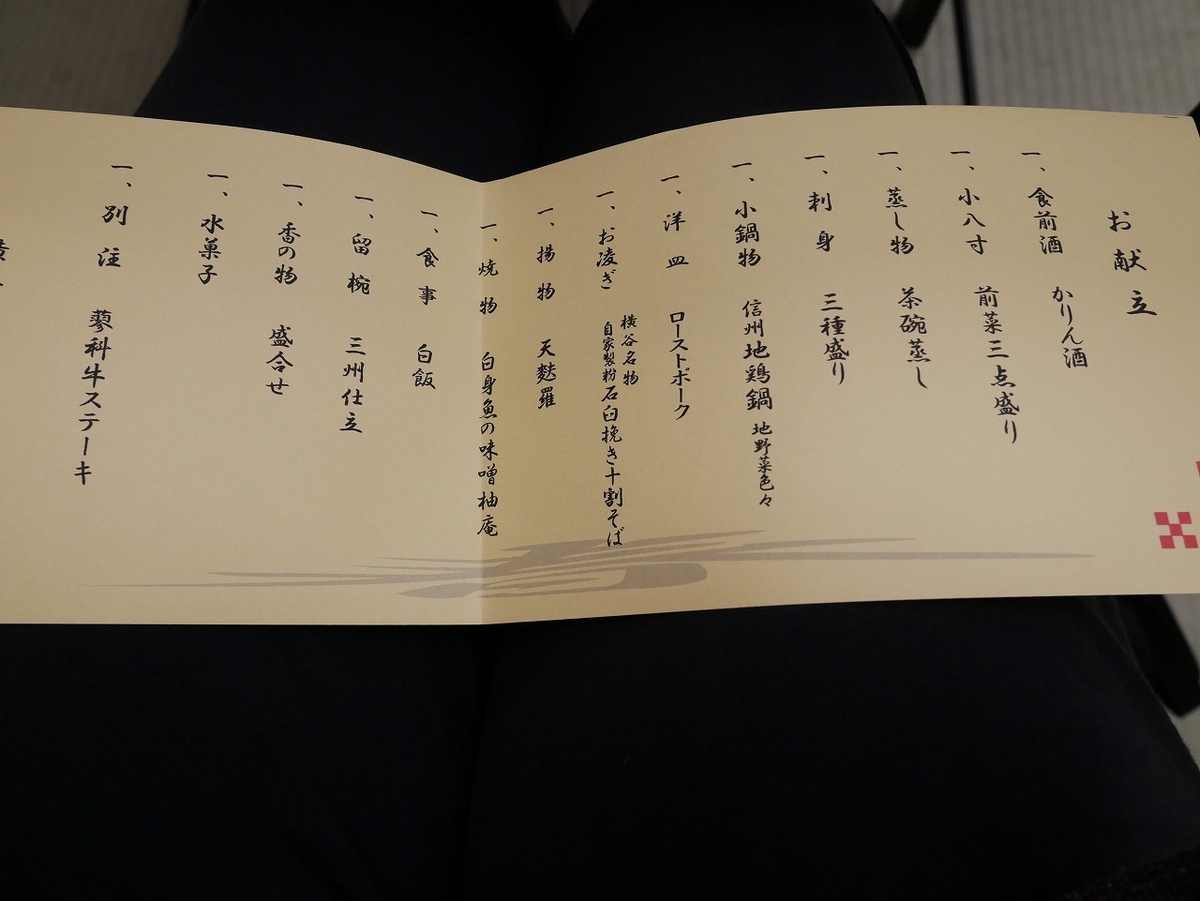 お献立
一、食前酒 かりん酒
一、小八寸 前菜三点盛り
一、蒸し物 茶碗蒸し
一、刺身 三種盛り
一、小鍋物 信州地鶏鍋 地野菜色々
一、洋皿 ローストポーク
一、お凌ぎ 横谷名物
自家製粉石臼挽き十割そば
一、揚物 天麩羅
一、焼物 白身魚の味噌柚庵
一、食事 白飯
一、留椀 三州仕立
一、香の物 盛合せ
一、水菓子
一、別注 蓼科牛ステーキ